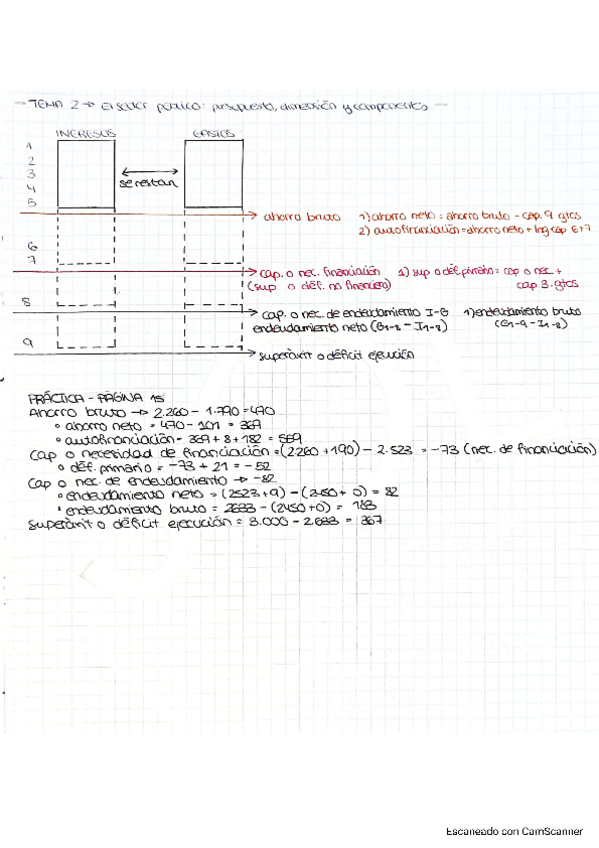 - TEMA 2 → El sector público: presupuesto, dimensión y componentes -
INGRESOS GASTOS
1
2
3
4
5
se restan
→ ahorro bruto 1) ahorro neto = ahorro bruto - cap. 9 gtos
2) autofinanciación = ahorro neto + Ing cap 6+7
6
7
→ cap. o nec. financiación 1) sup o déf. primario = cap o nec +
(sup o déf. no financiero) cap 3. gtos
8
→ cap. o nec. de endeudamiento I-G 1) endeudamiento bruto
endeudamiento neto (G1-8 - I1-8) (G1-9 - I1-8)
9
→ superávit o déficit ejecución
PRÁCTICA - PÁGINA 15
Ahorro bruto → 2.260 - 1.790 = 470
• ahorro neto = 470 - 101 = 369
• autofinanciación = 369 + 8 + 182 = 559
Cap o necesidad de financiación = (2260 + 190) - 2.523 = -73 (nec. de financiación)
• déf. primario = -73 + 21 = -52
Cap o nec. de endeudamiento → -82
• endeudamiento neto = (2523 + 9) - (2450 + 0) = 82
• endeudamiento bruto = 2633 - (2450 + 0) = 183
Superávit o déficit ejecución = 3.000 - 2.633 = 367
Escaneado con CamScanner